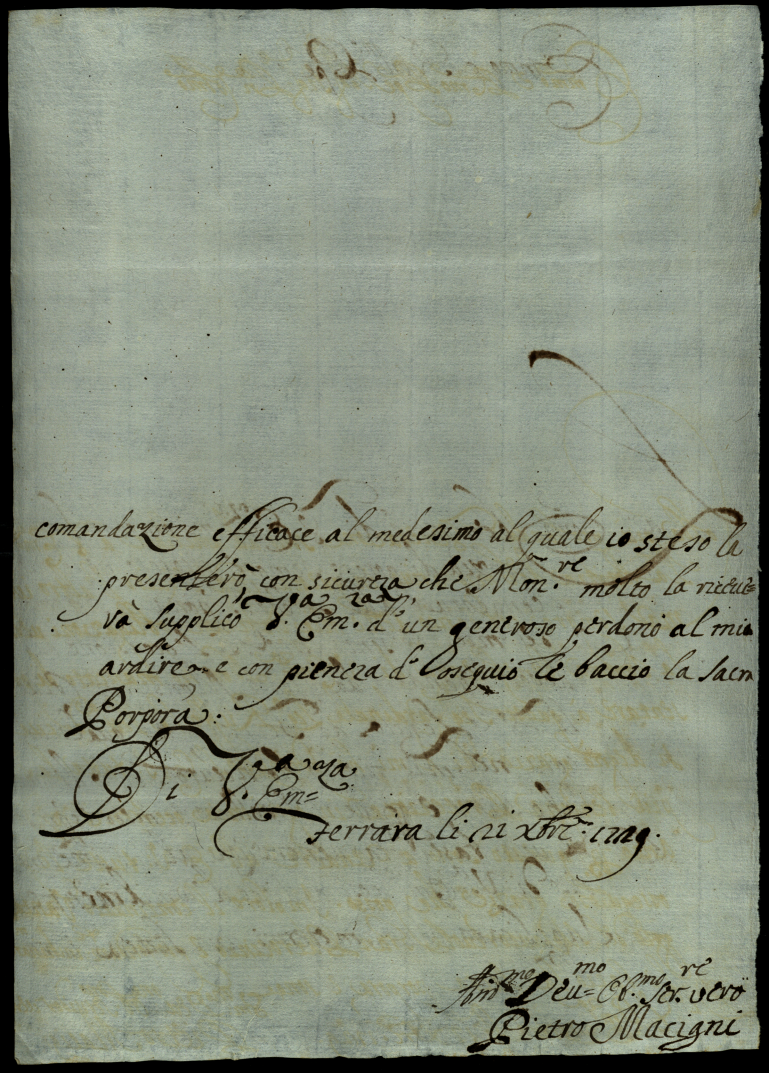 comandazione efficace al medesimo al quale io steso la
presenterò con sicureza che Mon.re molto la riceue=
rà supplico V.a Em.za d' un generoso perdono al mio
ardire e con pieneza d' osequio le baccio la sacra
Porpora:
Di V.a Em=za
Ferrara li 21 xbre: 1729.
Deu=mo Ob.mo Ser.re vero
Pietro Macigni